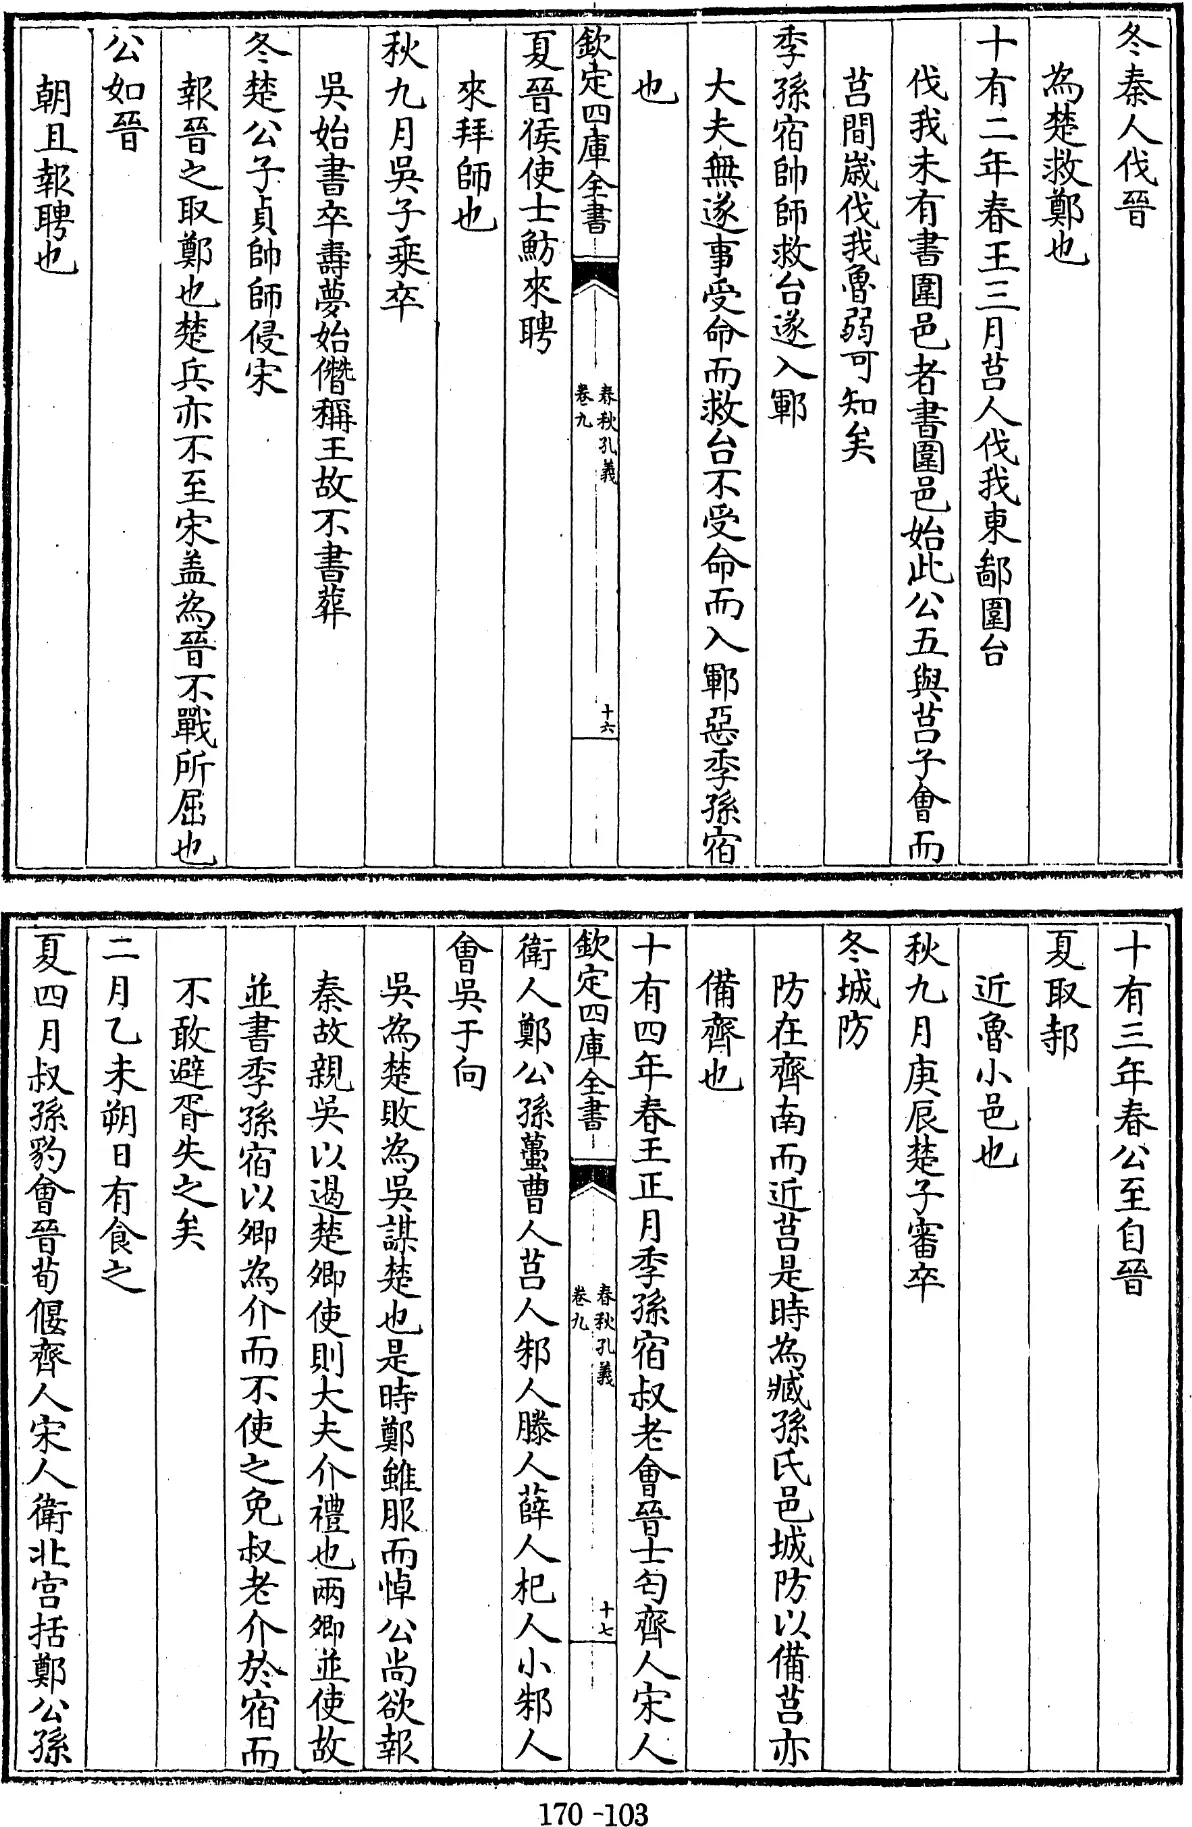 冬秦人伐晉
為楚救鄭也
十有二年春王三月莒人伐我東鄙圍台
伐我未有書圍邑者書圍邑始此公五與莒子會而
莒間嵗伐我魯弱可知矣
季孫宿帥師救台遂入鄆
大夫無遂事受命而救台不受命而入鄆惡季孫宿
也
欽定四庫全書
春秋孔義
卷九
十六
夏晉侯使士魴來聘
來拜師也
秋九月吳子乗卒
吳始書卒壽夢始僭稱王故不書葬
冬楚公子貞帥師侵宋
報晉之取鄭也楚兵亦不至宋盖為晉不戰所屈也
公如晉
朝且報聘也
十有三年春公至自晉
夏取邿
近魯小邑也
秋九月庚辰楚子審卒
冬城防
防在齊南而近莒是時為臧孫氏邑城防以備莒亦
備齊也
十有四年春王正月季孫宿叔老會晉士匄齊人宋人
欽定四庫全書
春秋孔義
卷九
十七
衛人鄭公孫蠆曹人莒人邾人滕人薛人杞人小邾人
會吳于向
吳為楚敗為吳謀楚也是時鄭雖服而悼公尚欲報
秦故親吳以遏楚卿使則大夫介禮也兩卿並使故
並書季孫宿以卿為介而不使之免叔老介於宿而
不敢避胥失之矣
二月乙未朔日有食之
夏四月叔孫豹會晉荀偃齊人宋人衛北宫括鄭公孫
170-103